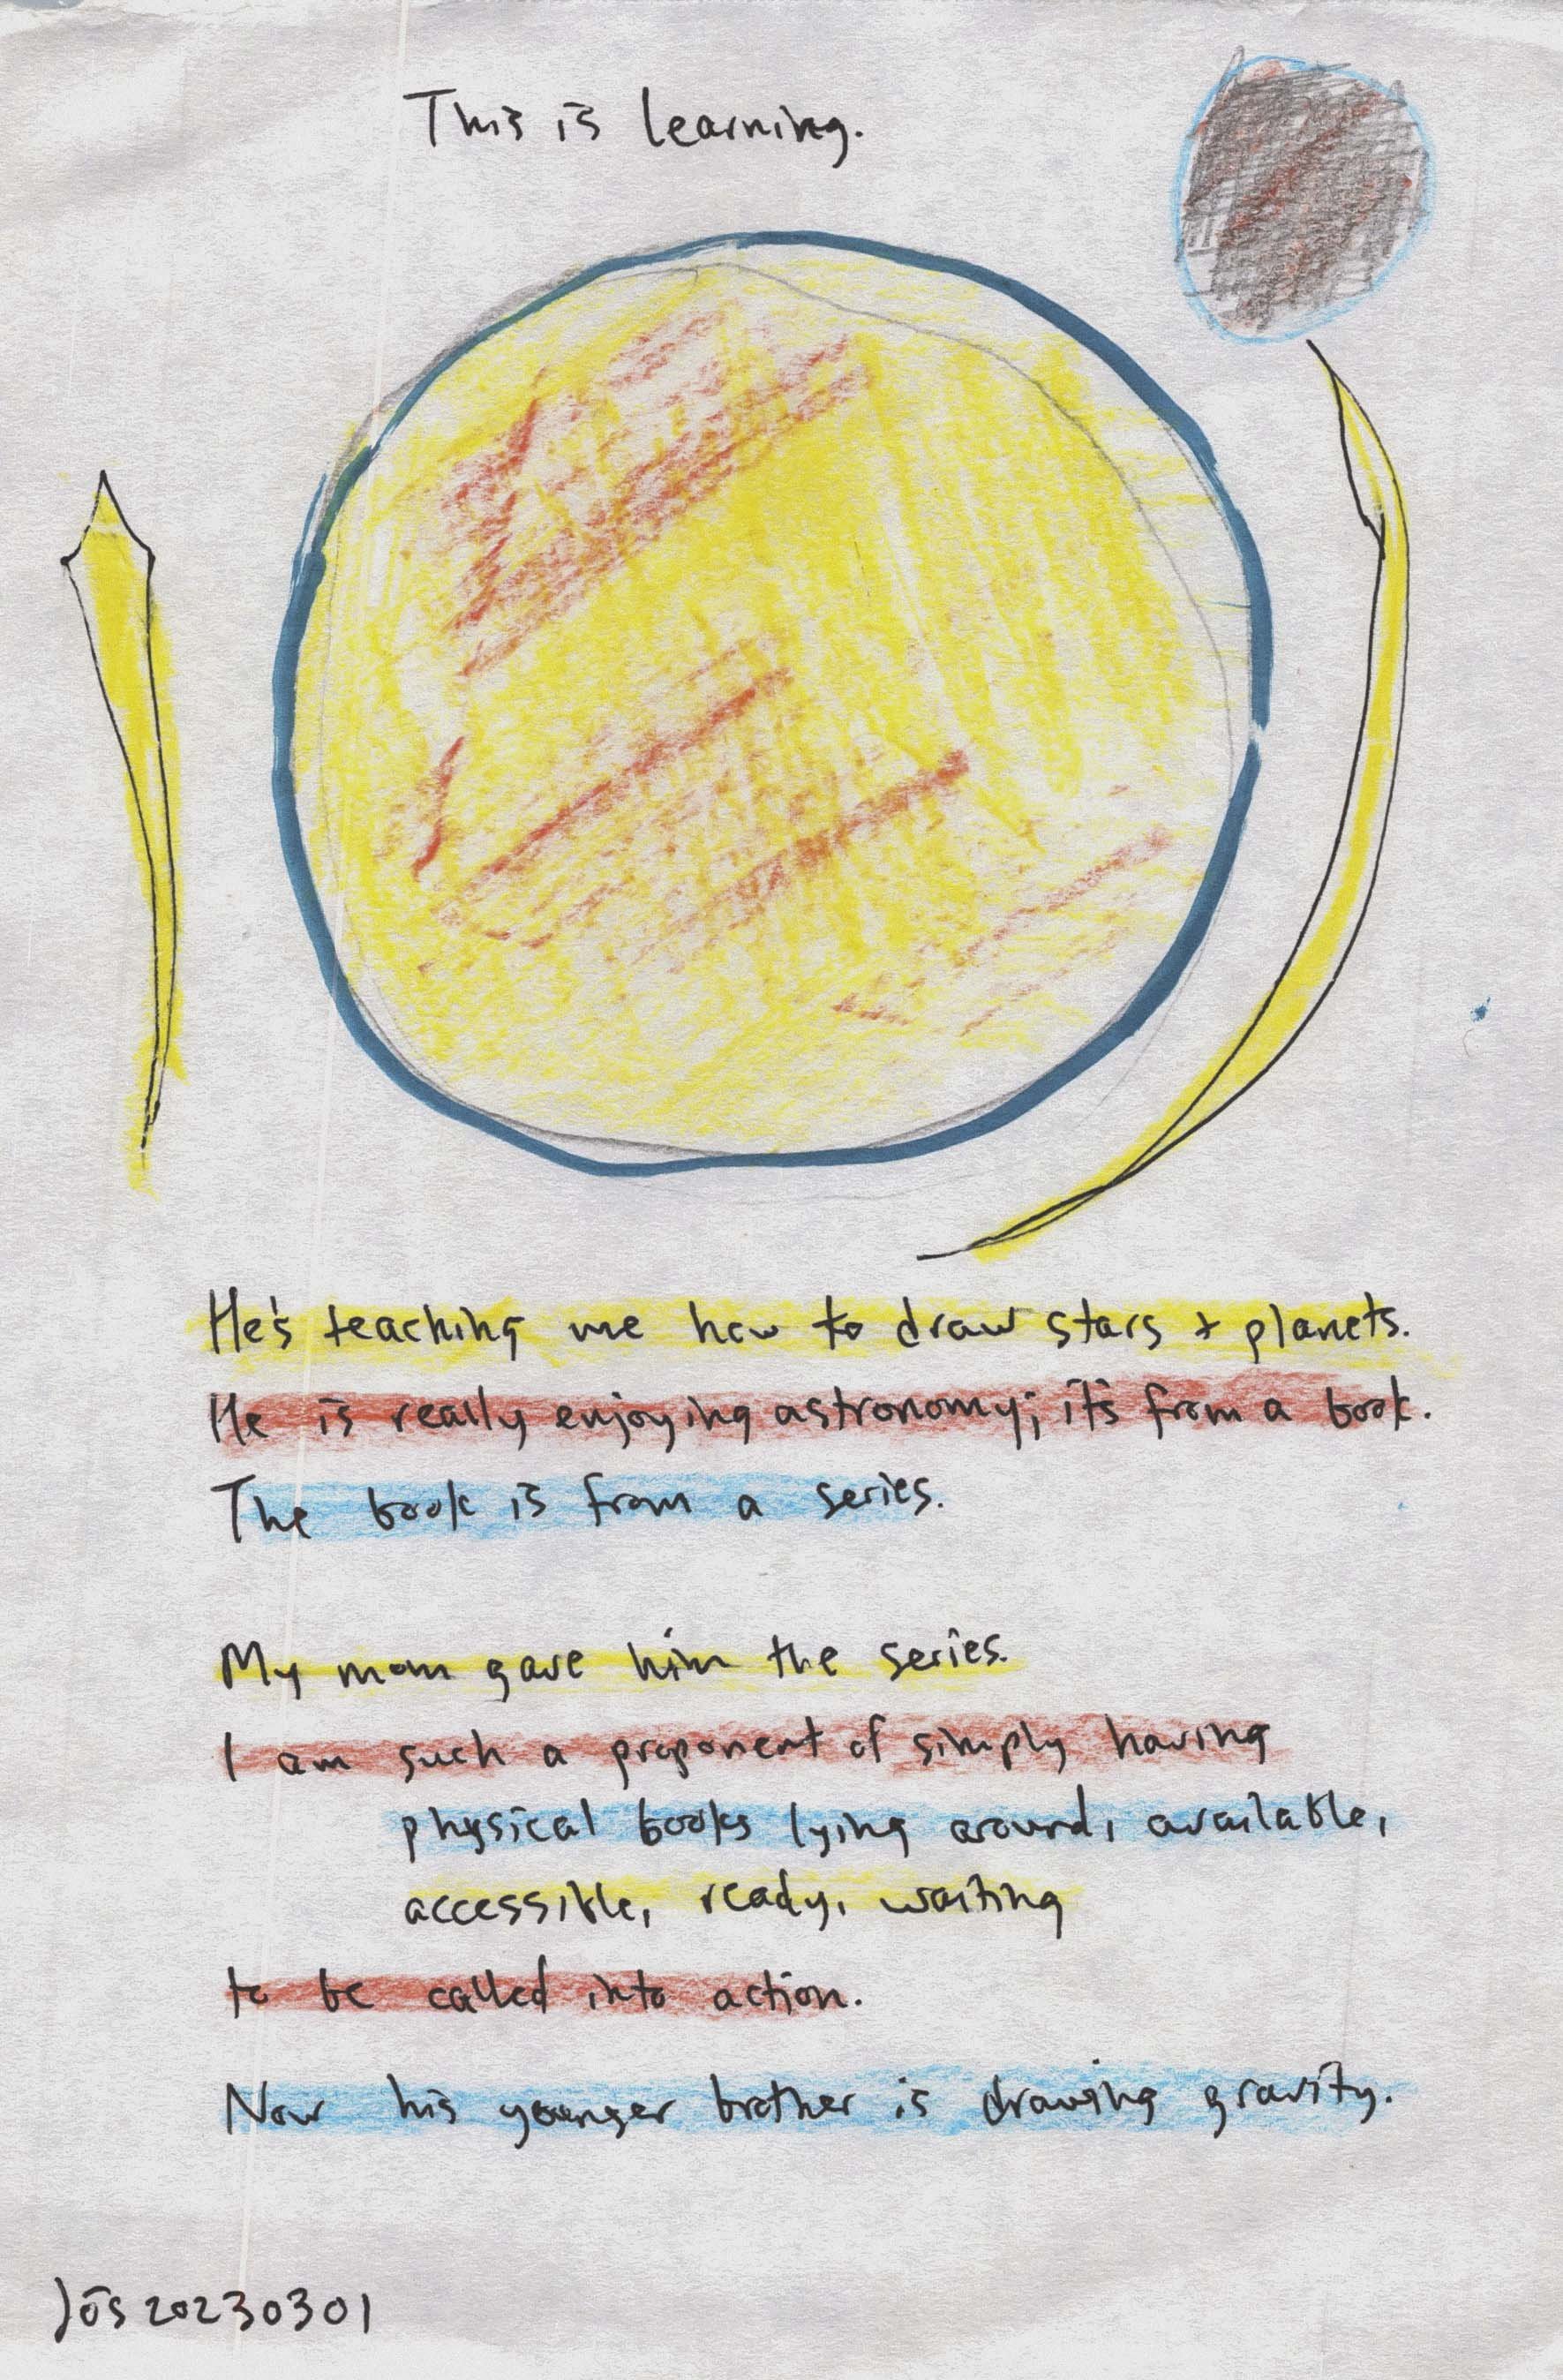 This is learning.
He's teaching me how to draw stars + planets.
He is really enjoying astronomy; it's from a book.
The book is from a series.
My mom gave him the series.
I am such a proponent of simply having
physical books lying around, available,
accessible, ready, waiting
to be called into action.
Now his younger brother is drawing gravity.
JōS 20230301